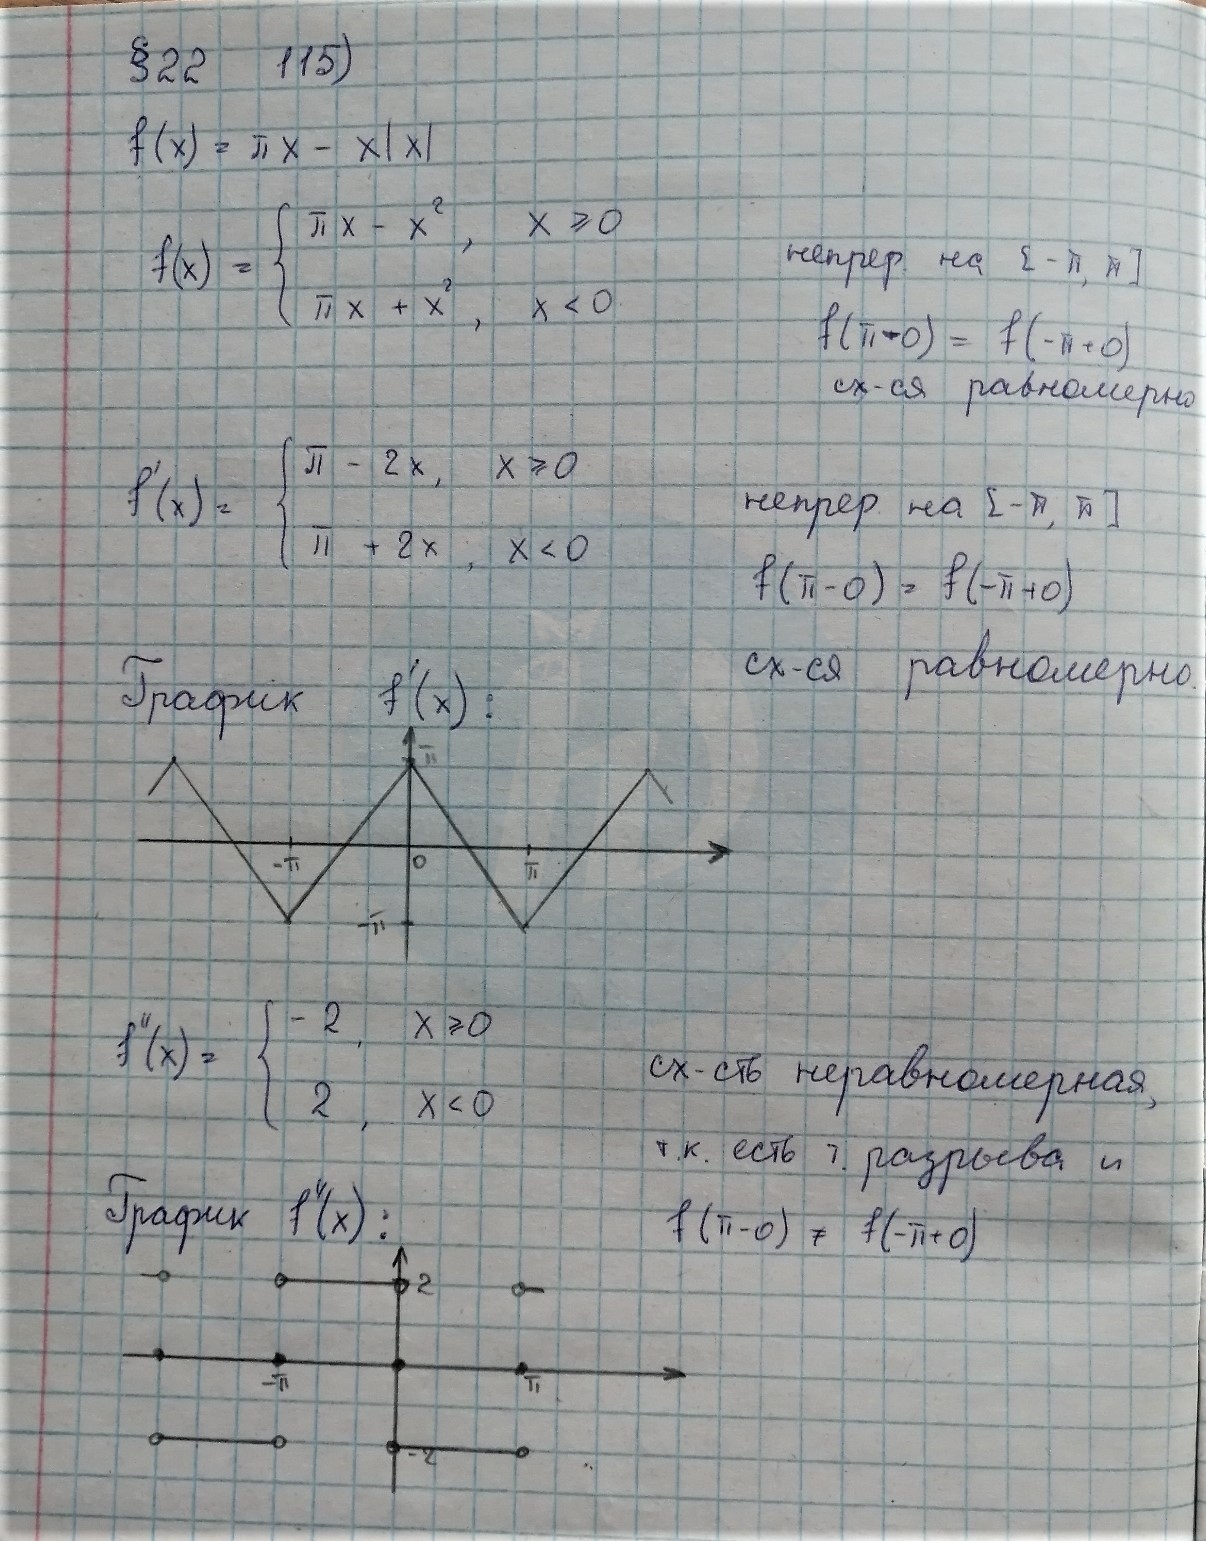 §22 115)
f(x) = πx - x|x|
f(x) = { πx - x², x ≥ 0
πx + x², x < 0
непрер на [-π, π]
f(π-0) = f(-π+0)
сх-ся равномерно
f'(x) = { π - 2x, x ≥ 0
π + 2x, x < 0
непрер на [-π, π]
f(π-0) = f(-π+0)
сх-ся равномерно.
График f'(x):
π
-π 0 π
-π
f''(x) = { -2, x ≥ 0
2, x < 0
сх-сть неравномерная,
т.к. есть т. разрыва и
f(π-0) ≠ f(-π+0)
График f''(x):
2
-π π
-2